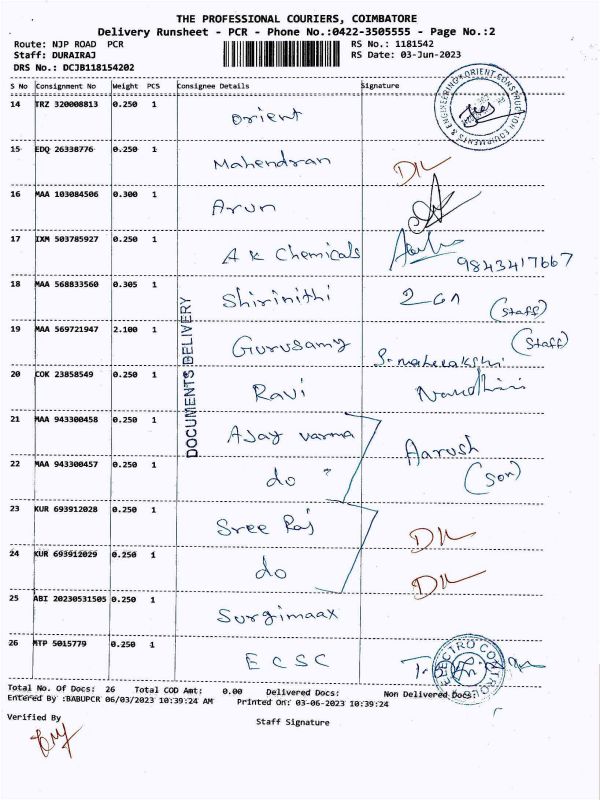 THE PROFESSIONAL COURIERS, COIMBATORE
Delivery Runsheet - PCR - Phone No.:0422-3505555 - Page No.:2
Route: NJP ROAD PCR RS No.: 1181542
Staff: DURAIRAJ RS Date: 03-Jun-2023
DRS No.: DCJB118154202
S No Consignment No Weight PCS Consignee Details Signature
14 TRZ 320008813 0.250 1 Orient
ORIENT CONSTRUCTION EQUIPMENTS & ENGINEERING
15 EDQ 26338776 0.250 1 Mahendran
16 MAA 103084506 0.300 1 Arun
17 IXM 503785927 0.250 1 A K Chemicals 9843417667
18 MAA 568833560 0.305 1 Shirinithi (Staff)
19 MAA 569721947 2.100 1 Gurusamy (Staff)
20 COK 23858549 0.250 1 Ravi Nandhini
21 MAA 943300458 0.250 1 Ajay varma Aarush
22 MAA 943300457 0.250 1 do " (Son)
23 KUR 693912028 0.250 1 Sree Raj
24 KUR 693912029 0.250 1 do
25 ABI 20230531505 0.250 1 Surgimaax
26 MTP 5015779 0.250 1 E C S C
DOCUMENTS DELIVERY
Total No. Of Docs: 26 Total COD Amt: 0.00 Delivered Docs: Non Delivered Docs:
Entered By :BABUPCR 06/03/2023 10:39:24 AM Printed On: 03-06-2023 10:39:24
Verified By Staff Signature